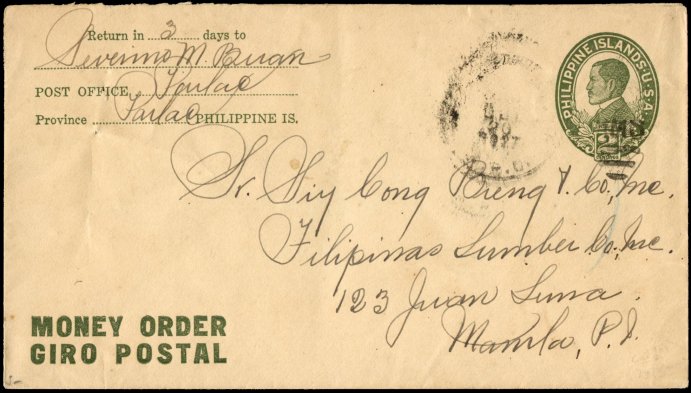 Return in 3 days to
Severino M. Buan
POST OFFICE, Tarlac
Province Tarlac PHILIPPINE IS.
PHILIPPINE ISLANDS·U·S·A·
Sr. Siy Cong Bieng & Co., Inc.
Filipinas Lumber Co., Inc.
123 Juan Luna.
Manila, P. I.
MONEY ORDER
GIRO POSTAL